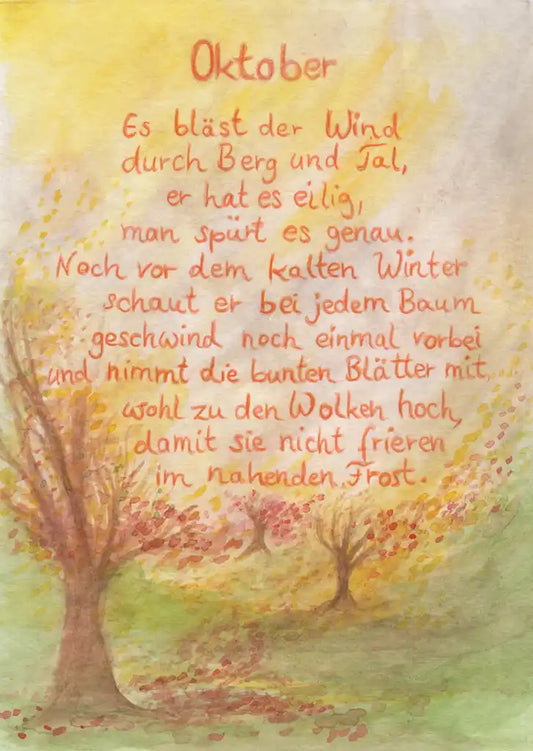 Oktober
Es bläst der Wind
durch Berg und Tal,
er hat es eilig,
man spürt es genau.
Noch vor dem kalten Winter
schaut er bei jedem Baum
geschwind noch einmal vorbei
und nimmt die bunten Blätter mit,
wohl zu den Wolken hoch,
damit sie nicht frieren
im nahenden Frost.